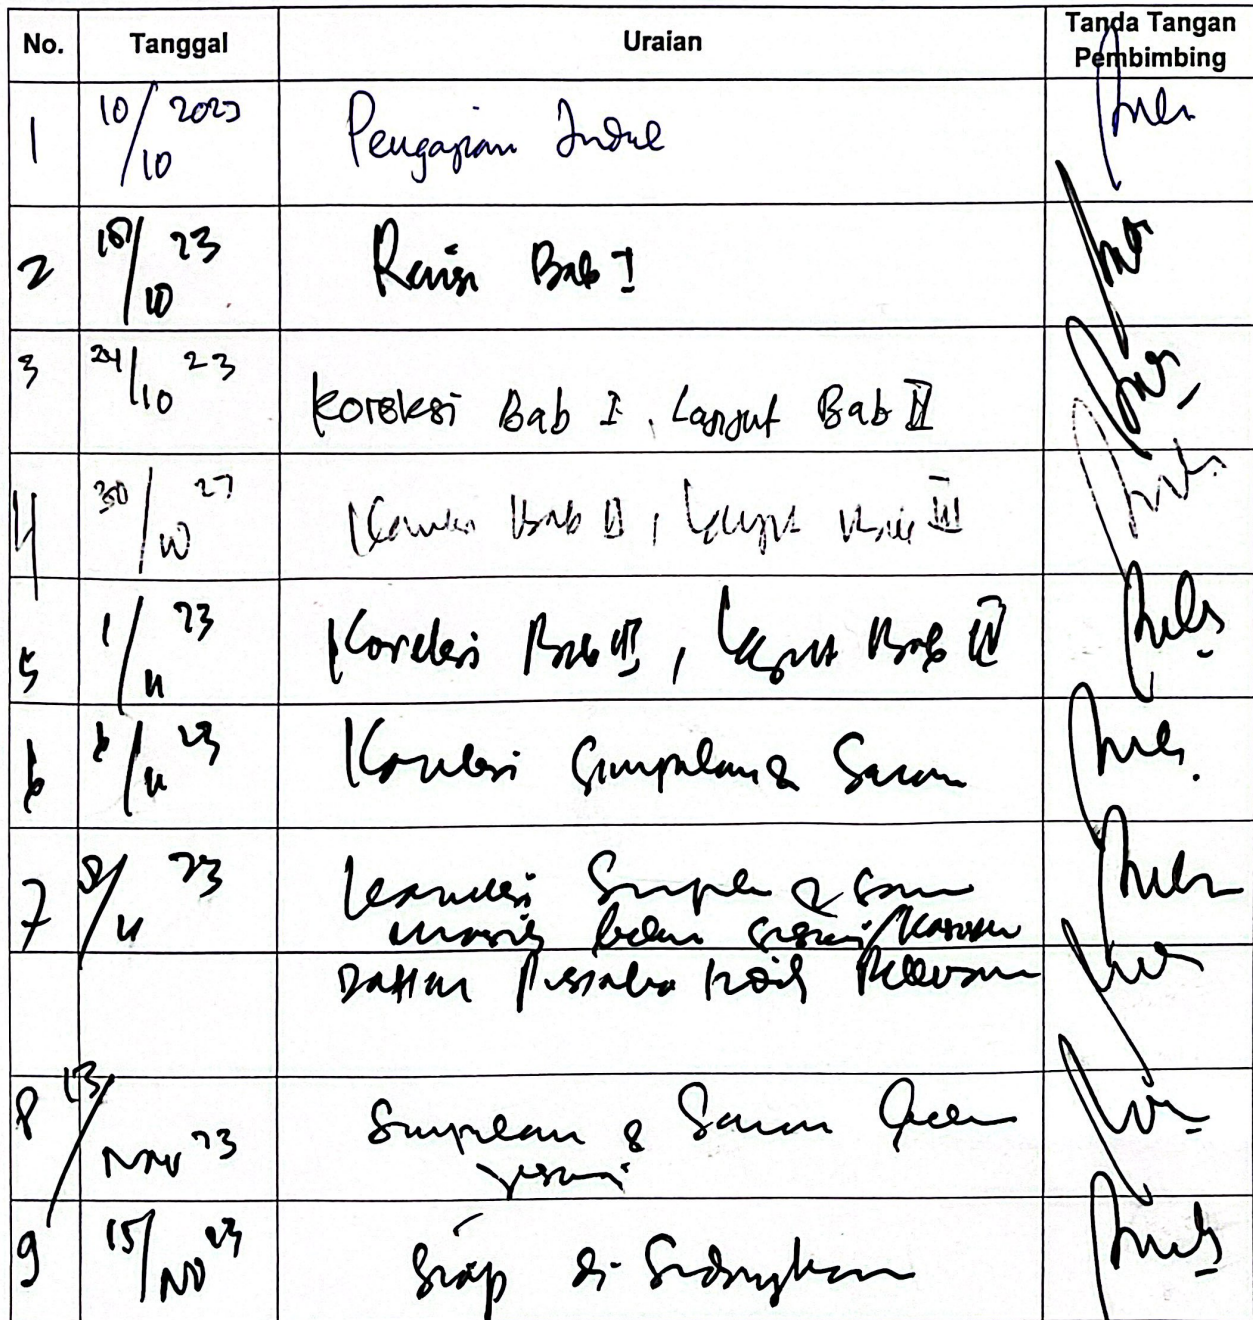 No. Tanggal Uraian Tanda Tangan Pembimbing
1 10/10 2023 Pengajuan Judul
2 18/10 23 Revisi Bab I
3 24/10 23 Koreksi Bab I, Lanjut Bab II
4 30/10 23 Koreksi Bab II, Lanjut Bab III
5 1/11 23 Koreksi Bab III, Lanjut Bab IV
6 6/11 23 Koreksi Simpulan & Saran
7 8/11 23 Koreksi Simpulan & Saran
masih belum sesuai/
Daftar Pustaka Relevan
8 13/Nov 23 Simpulan & Saran
sesuai
9 15/Nov 23 Siap di Sidangkan